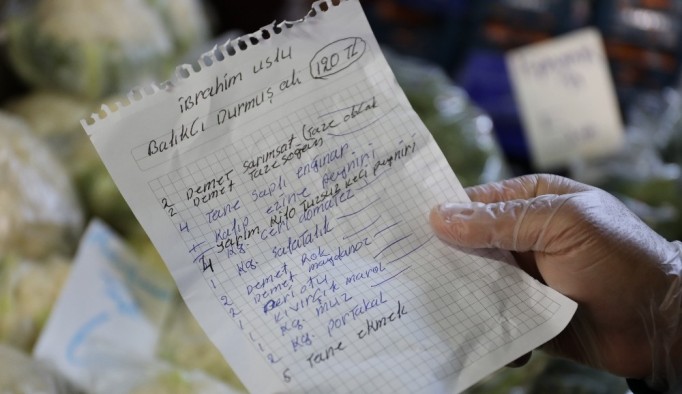 ibrahim uslu
Balıkcı Durmuş ali 120 TL
2 Demet sarımsat (Taze olacak
2 Demet Taze soğan
4 Tane saplı enginar
1 Kalıp ezine peyniri
1 yarım kilo Tuzsuz keçi peyniri
4 kg. ceri domatez
1 kg. salatalık
2 Demet Rok
2 Demet maydanoz
1 Dereotu
1 kıvırcık marol
1 kg. muz
2 kg. portakal
5 Tane ekmek